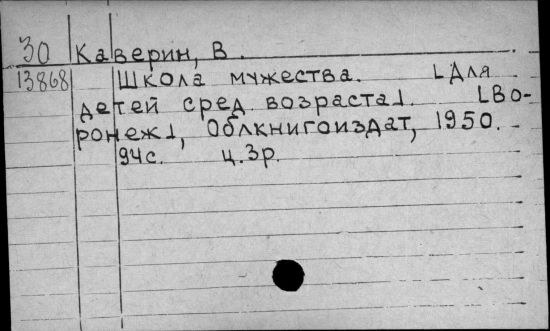 30 Каверин, В.
13868 Школа мужества. [Для
детей сред. возраста]. [Во-
ронеж], Облкнигоиздат, 1950.
94с. ц.3р.